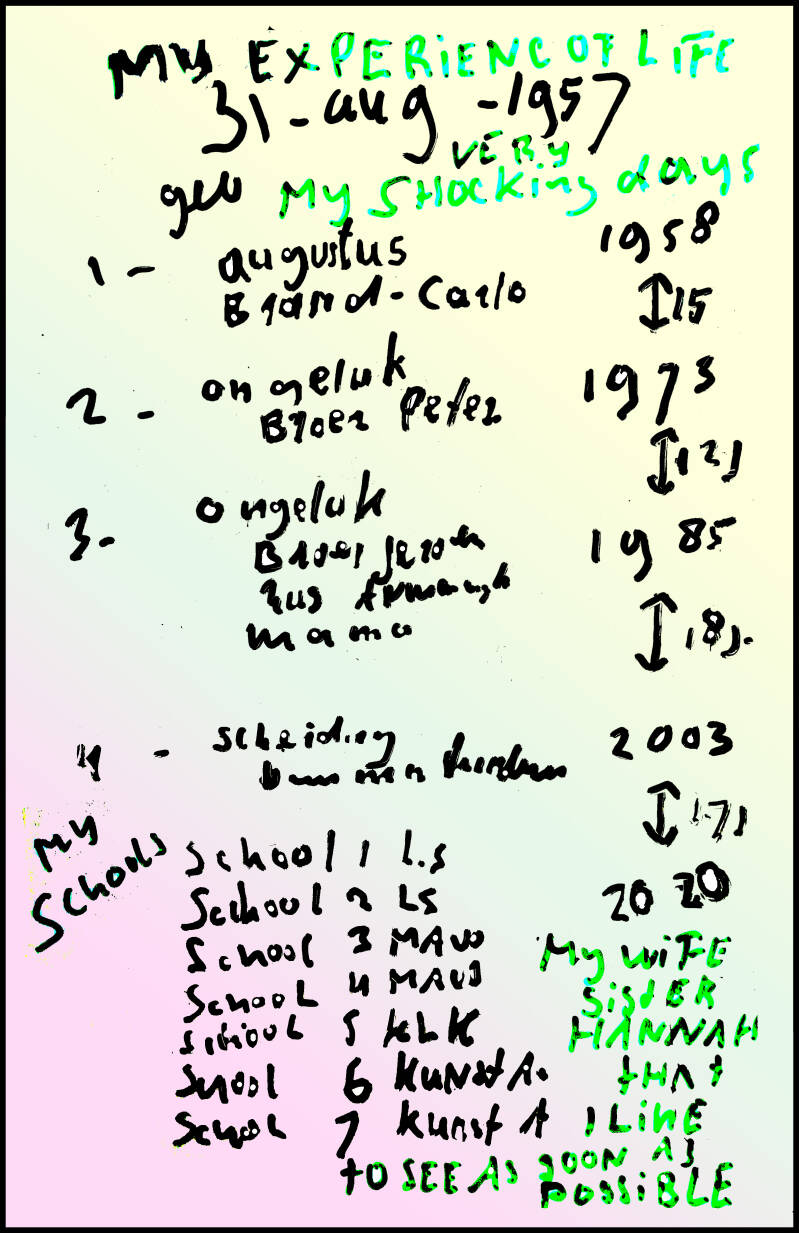 My EXPERIENC OF LIFE
31-aug-1957
VERY
geb My SHOCKing days
1- augustus 1958
Brand-Carlo ↕15
2- ongeluk 1973
Broer Peter ↕12j
3- ongeluk 1985
Broer Jeroen
zus
mama ↕18j.
4- scheiding 2003
↕17j
My
SCHools
School 1 L.S
School 2 LS 2020
School 3 MAVO My WiFE
SchooL 4 MAVO SistER
SchooL 5 KLK HANNAH
School 6 KUNSt A. tHAt
School 7 Kunst A I LiKE
tO SEE AS SOON AS
POSSiBLE